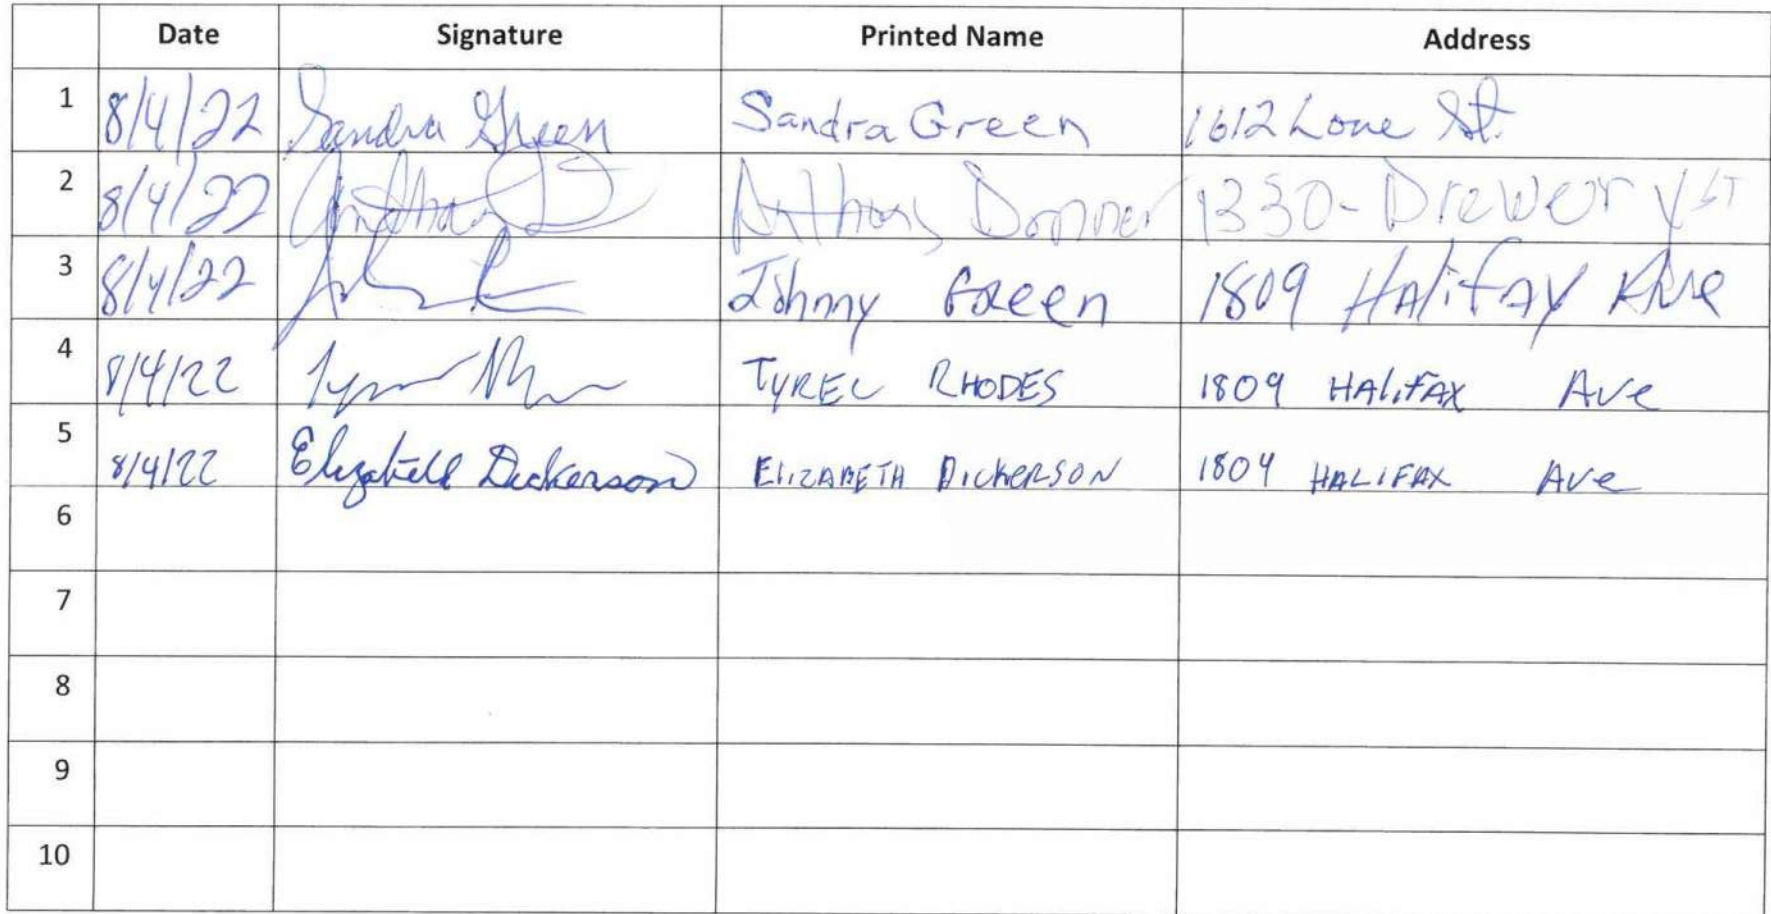 Date Signature Printed Name Address
1 8/4/22 Sandra Green Sandra Green 1612 Lowe St.
2 8/4/22 Anthony 1330-Drewery ST
3 8/4/22 Johnny Green 1809 Halifax Ave
4 8/4/22 TYREL RHODES 1809 HALIFAX Ave
5 8/4/22 Elizabeth Dickerson ELIZABETH DICKERSON 1809 HALIFAX Ave
6
7
8
9
10